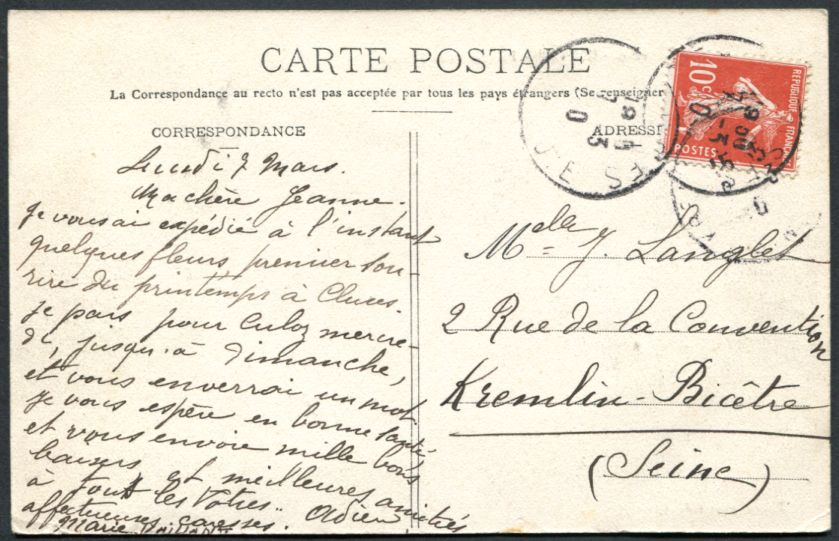 CARTE POSTALE
La Correspondance au recto n'est pas acceptée par tous les pays étrangers (Se renseigner
CORRESPONDANCE
ADRESSE
REPUBLIQUE FRANÇAISE
10c
POSTES
Lundi 7 Mars.
Ma chère Jeanne.
Je vous ai expédié à l'instant
quelques fleurs premier sou-
rire du printemps à Cluses.
Je pars pour Culoz mercre-
di, jusqu'à Dimanche,
et vous enverrai un mot.
Je vous espère en bonne santé,
et vous envoie mille bons
baisers et meilleures amitiés
à tous les Vôtres. Adieu,
affectueuses caresses.
Marie
Melle J. Langlet
2 Rue de la Convention
Kremlin-Bicêtre
(Seine)